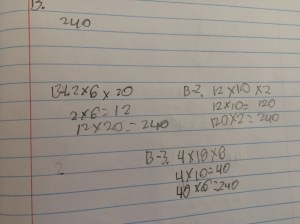 B.
240
B-1. 2×6×20
2×6=12
12×20=240
B-2. 12×10×2
12×10=120
120×2=240
B-3. 4×10×6
4×10=40
40×6=240